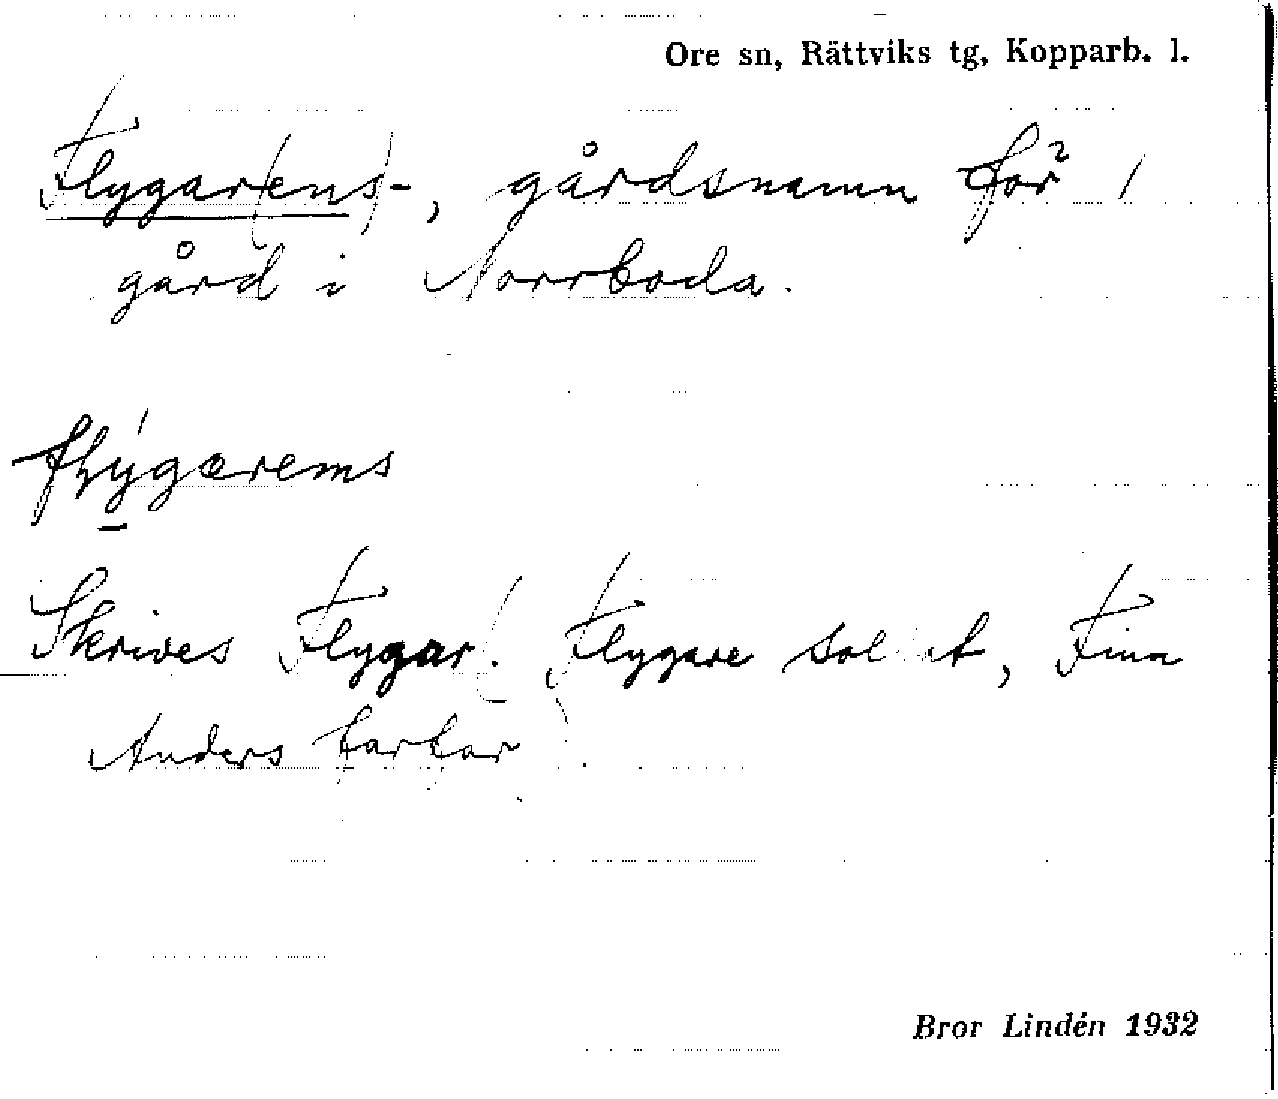 Ore sn, Rättviks tg, Kopparb. l.
Flygar(ens)-, gårdsnamn för 1
gård i Norrboda.
Skrives Flygar. (Flygare soldat, Finn
Anders farfar)
Bror Lindén 1932